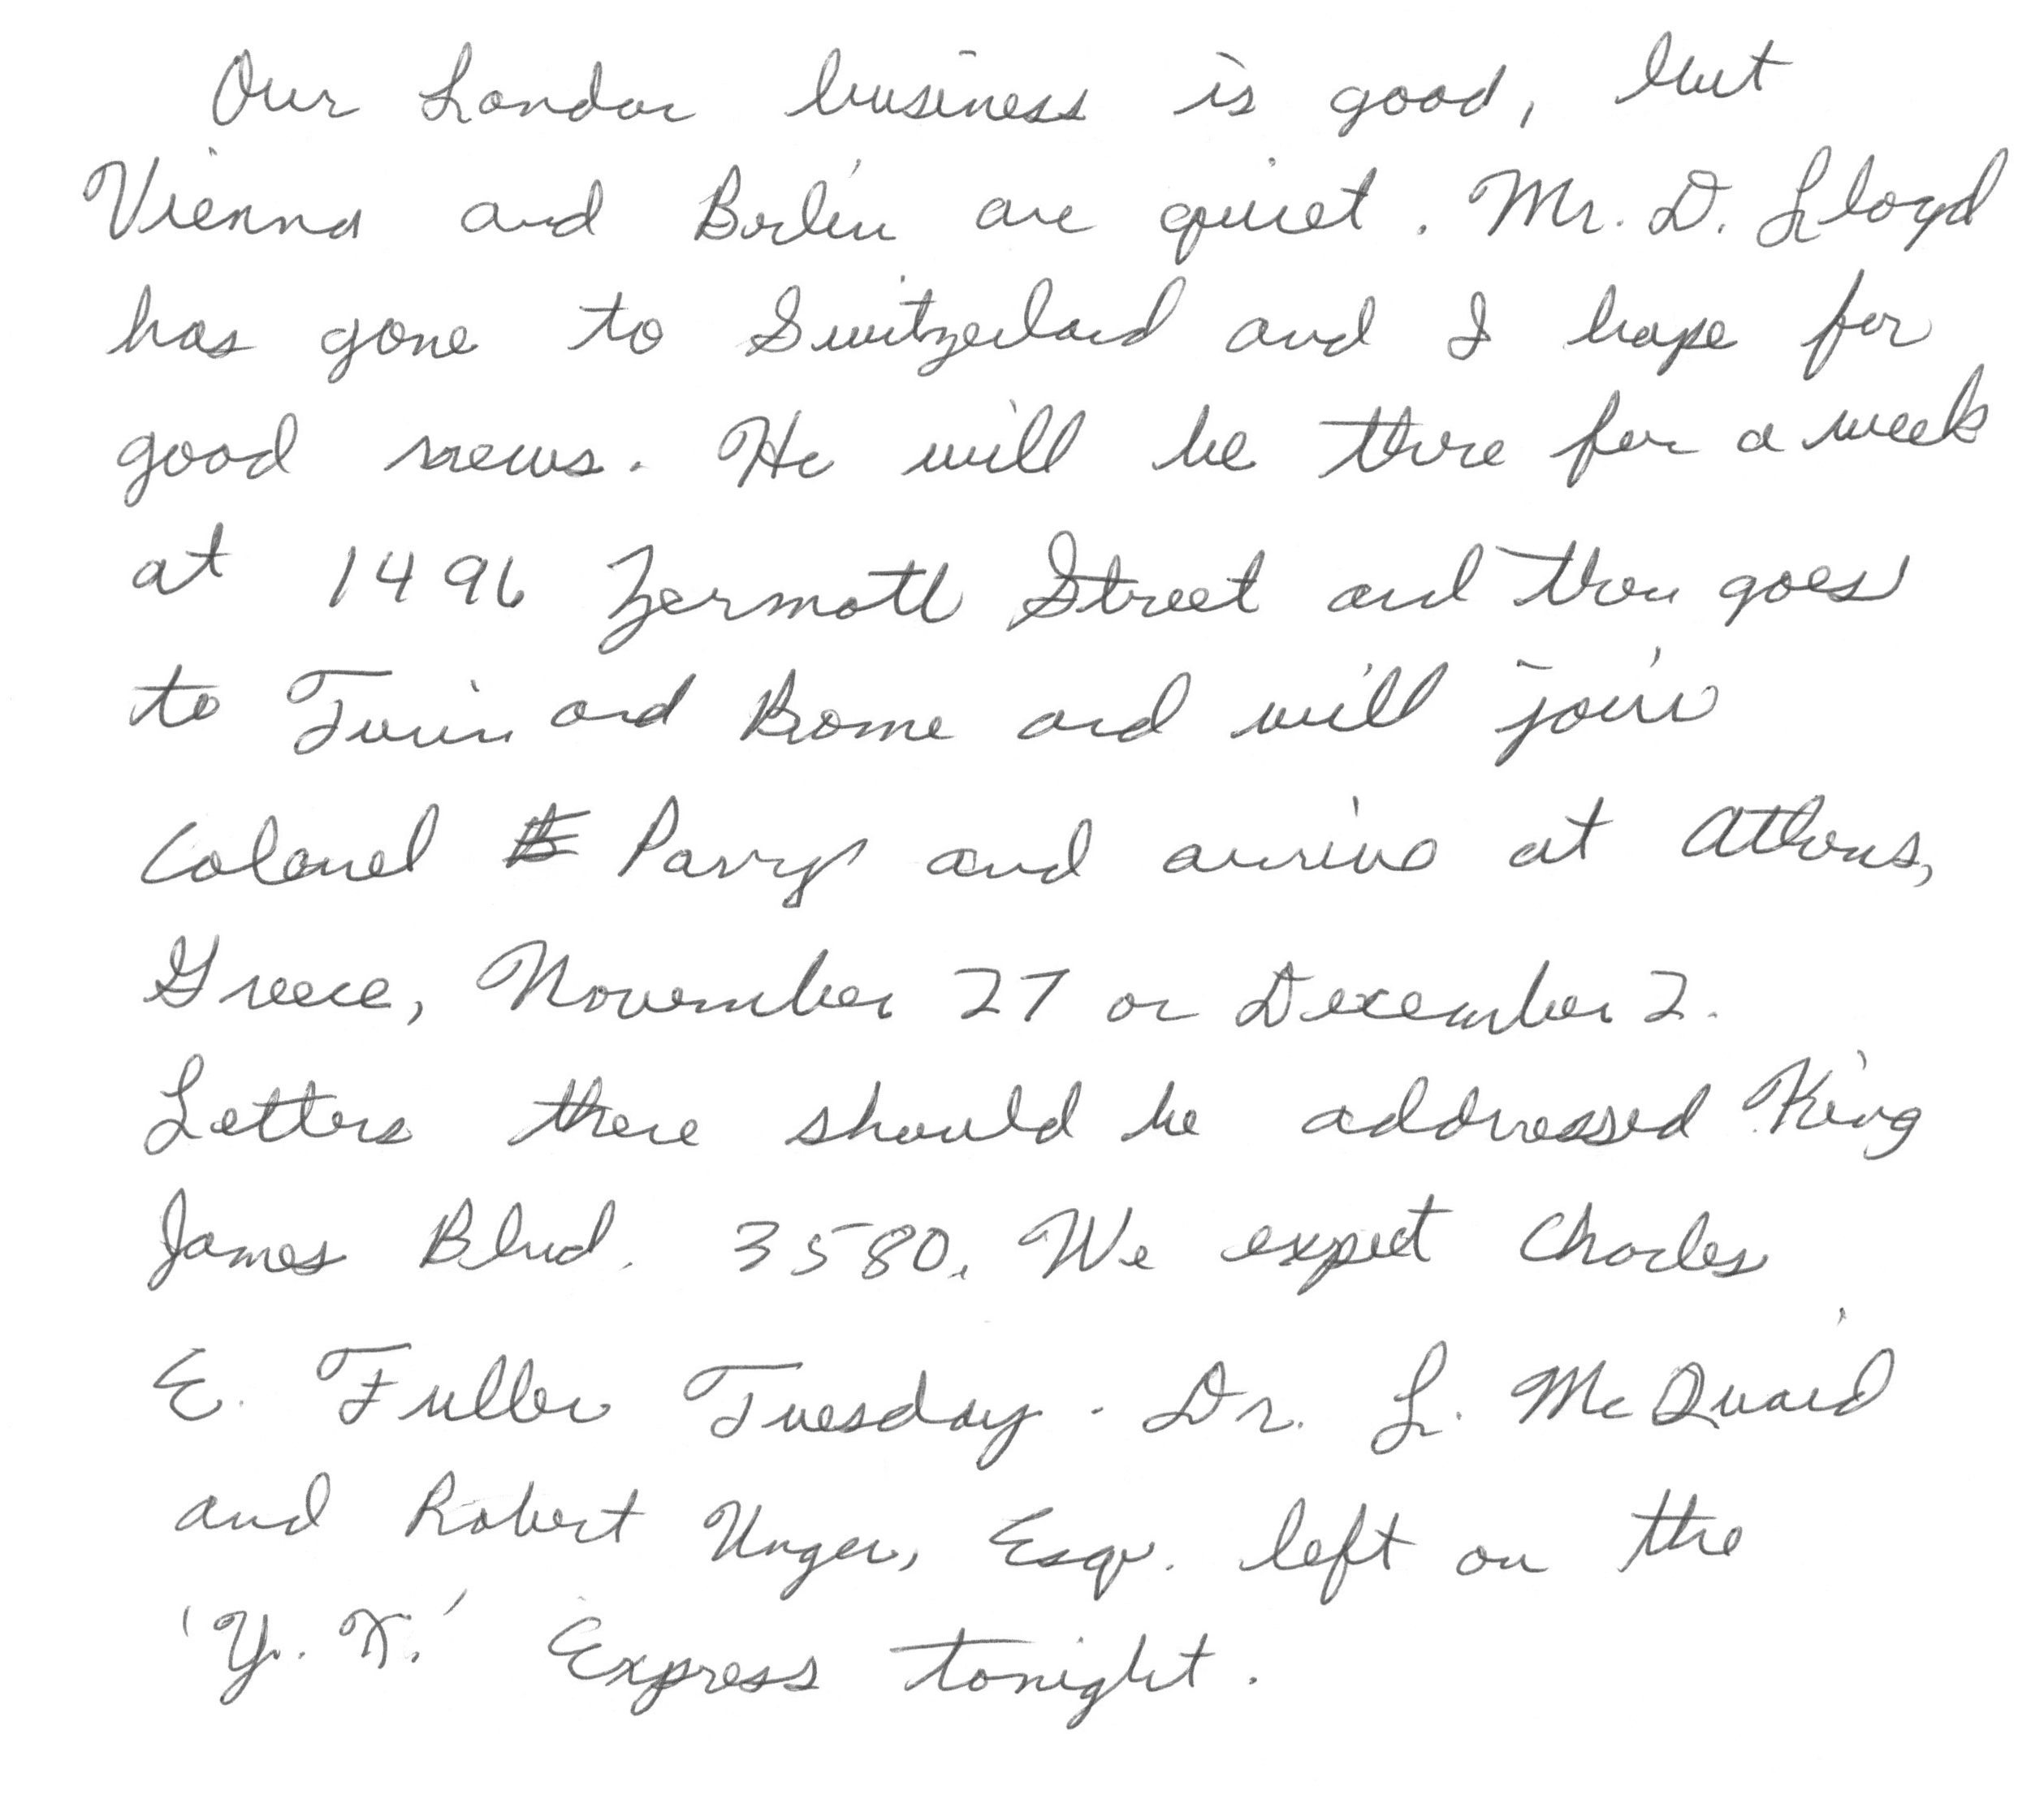 Our London business is good, but
Vienna and Berlin are quiet. Mr. D. Lloyd
has gone to Switzerland and I hope for
good news. He will be there for a week
at 1496 Zermott Street and then goes
to Turin and Rome and will join
Colonel Parry and arrive at Athens,
Greece, November 27 or December 2.
Letters there should be addressed King
James Blvd. 3580. We expect Charles
E. Fuller Tuesday. Dr. L. McQuaid
and Robert Unger, Esq. left on the
'Y. X.' Express tonight.